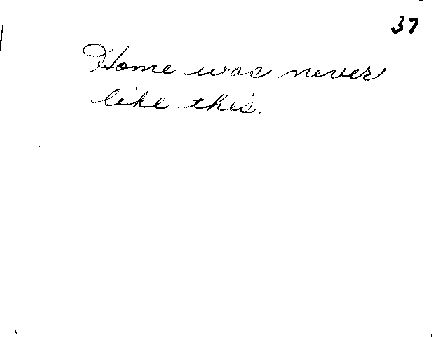 37
Home was never
like this.